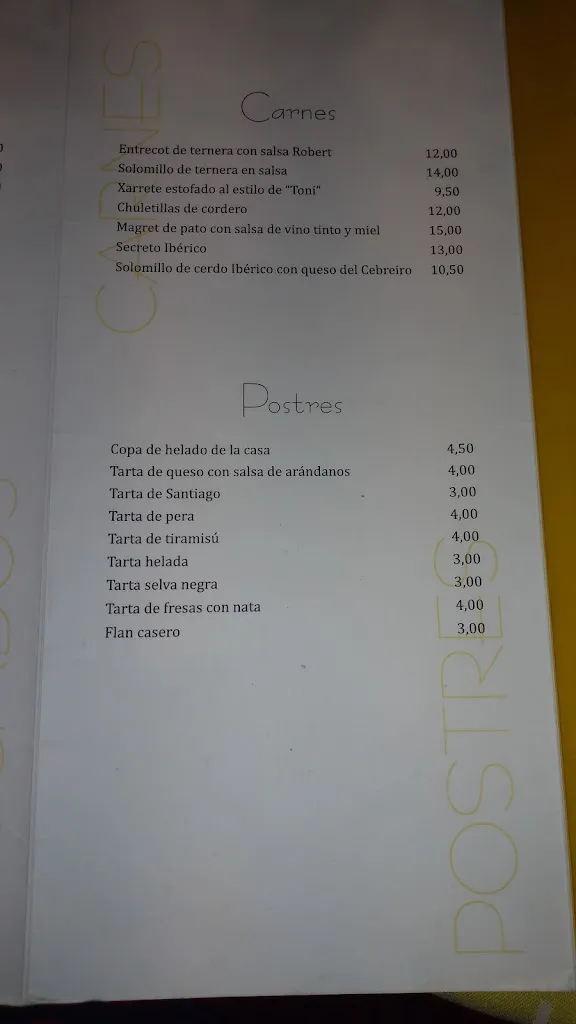 CARNES
Carnes
Entrecot de ternera con salsa Robert 12,00
Solomillo de ternera en salsa 14,00
Xarrete estofado al estilo de "Toni" 9,50
Chuletillas de cordero 12,00
Magret de pato con salsa de vino tinto y miel 15,00
Secreto Ibérico 13,00
Solomillo de cerdo Ibérico con queso del Cebreiro 10,50
Postres
Copa de helado de la casa 4,50
Tarta de queso con salsa de arándanos 4,00
Tarta de Santiago 3,00
Tarta de pera 4,00
Tarta de tiramisú 4,00
Tarta helada 3,00
Tarta selva negra 3,00
Tarta de fresas con nata 4,00
Flan casero 3,00
POSTRES